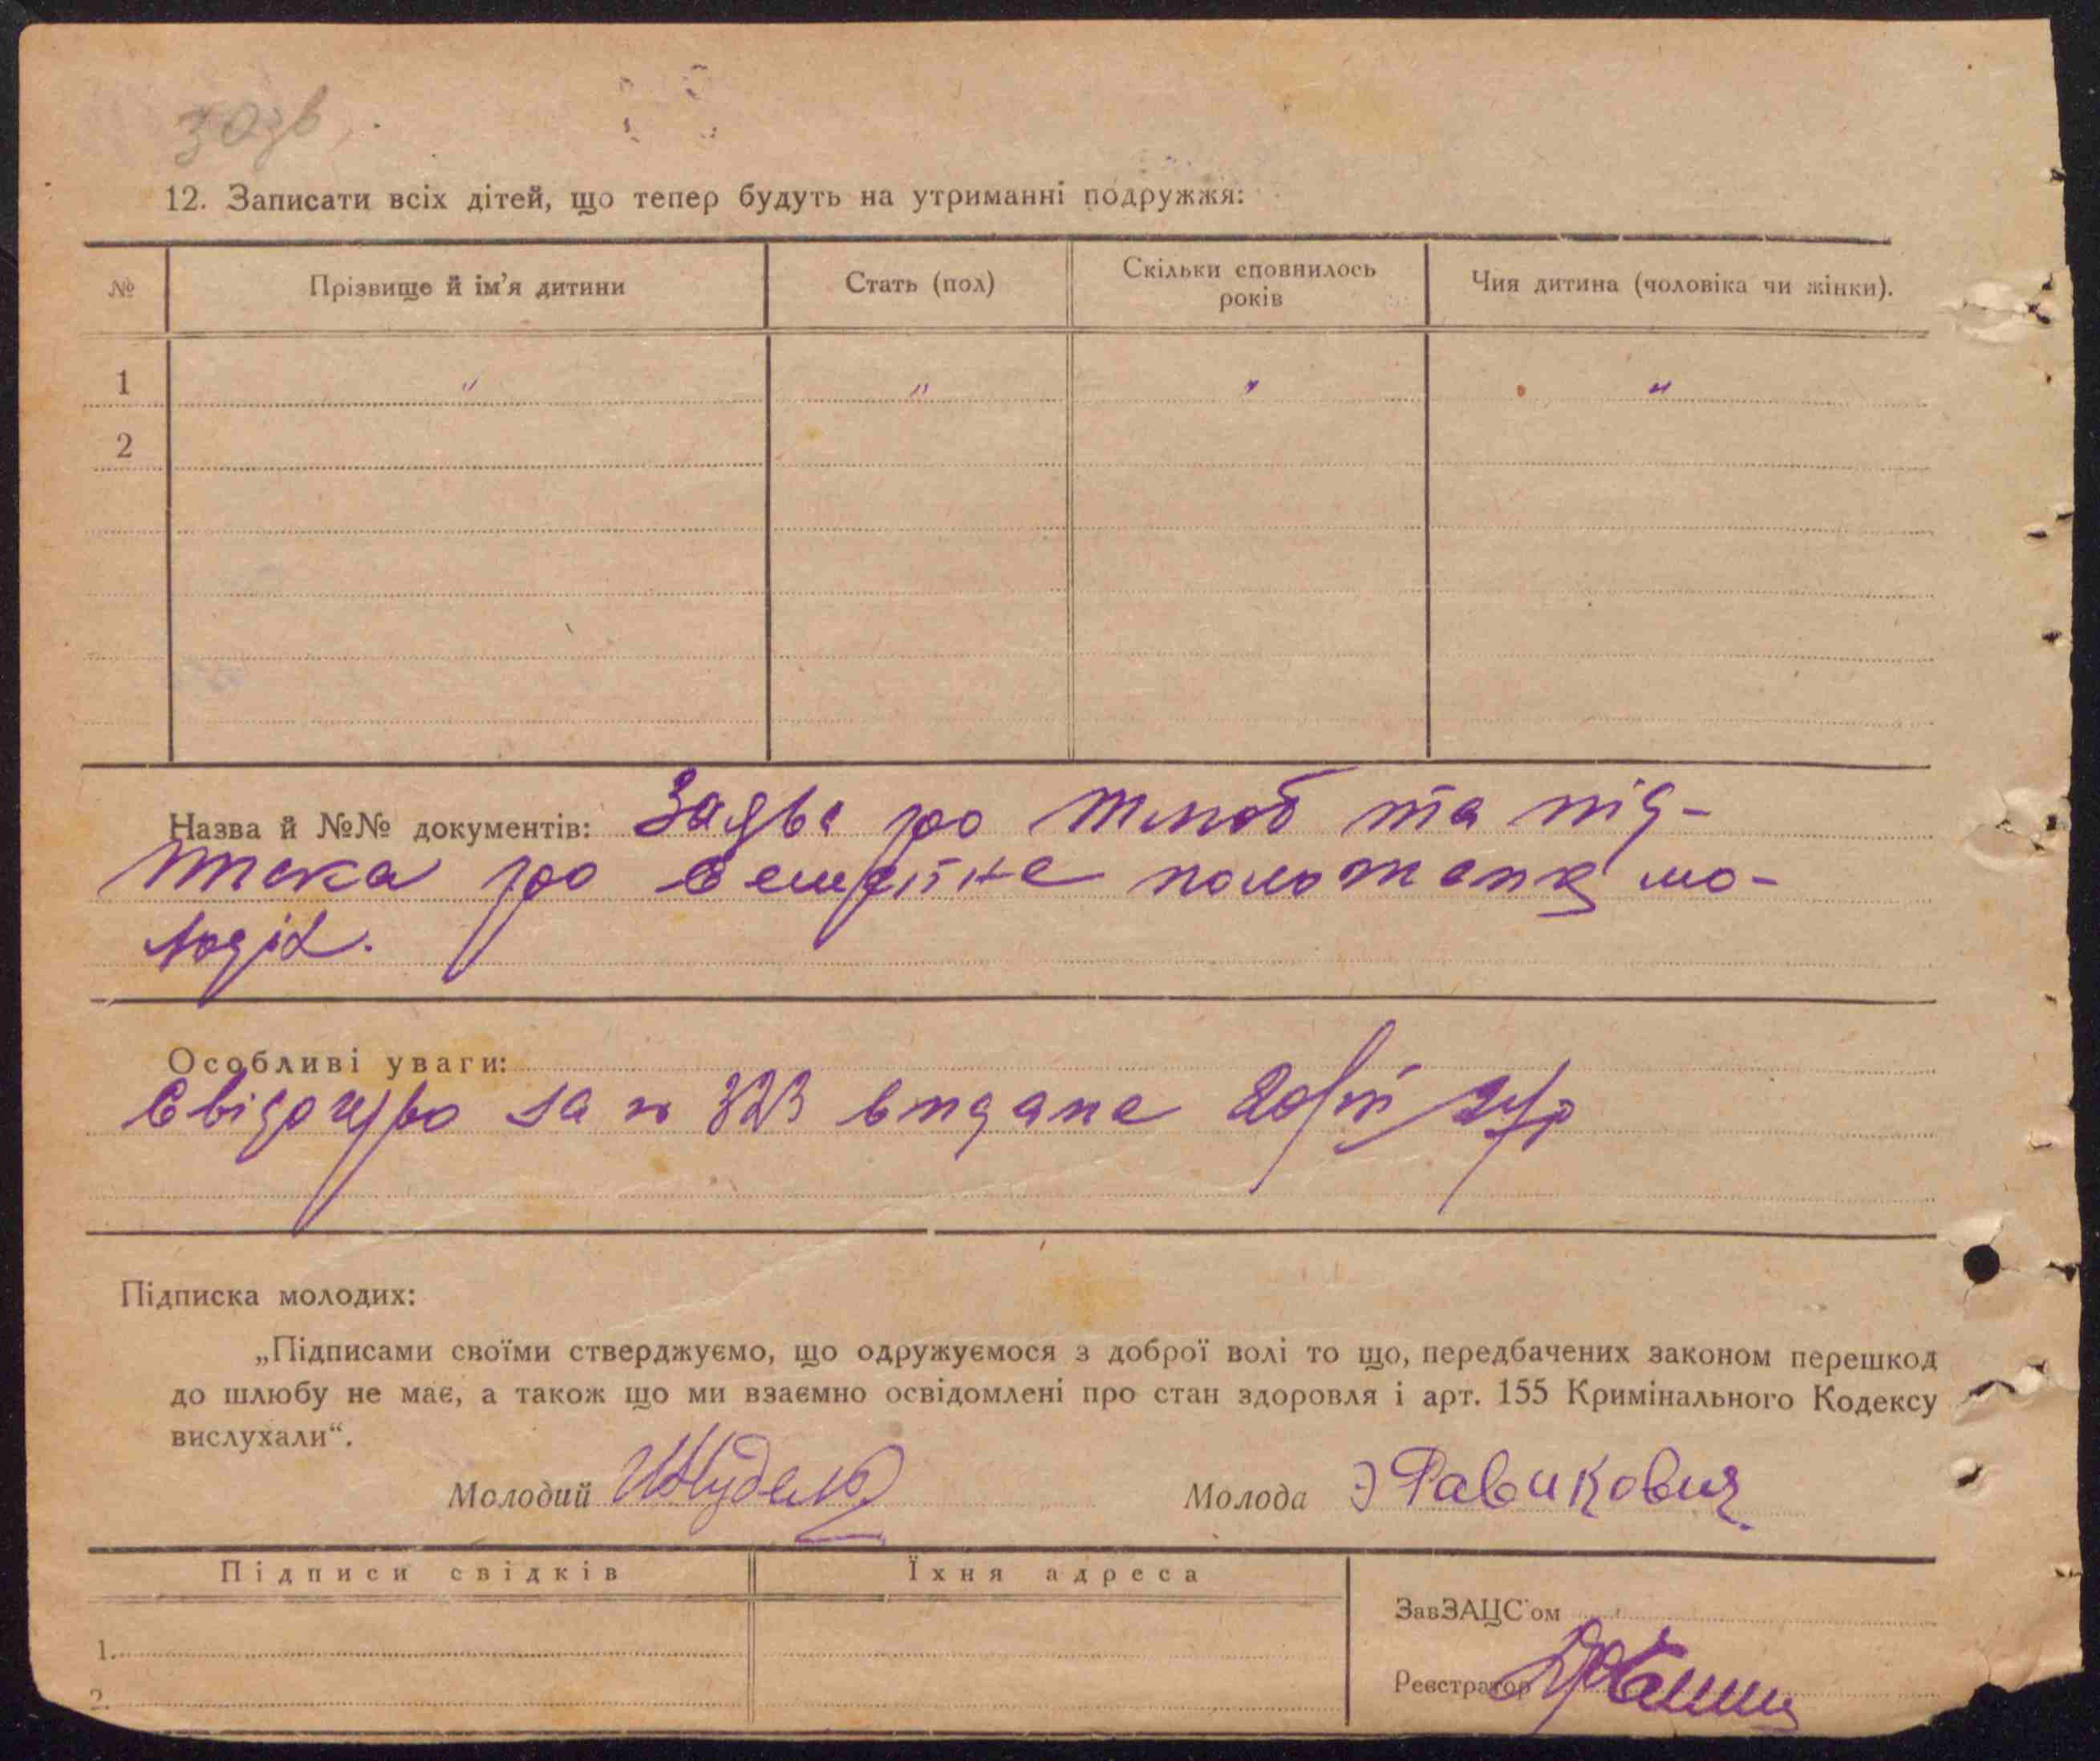 12. Записати всіх дітей, що тепер будуть на утриманні подружжя:
№ Прізвище й ім'я дитини Стать (пол) Скільки сповнилось років Чия дитина (чоловіка чи жінки).
1 " " " "
2
Назва й №№ документів: Заява про шлюб та під-
писка про сімейне положення мо-
лодих.
Особливі уваги:
Свідоцтво за № 323 видане
Підписка молодих:
„Підписами своїми стверджуємо, що одружуємося з доброї волі то що, передбачених законом перешкод
до шлюбу не має, а також що ми взаємно освідомлені про стан здоровля і арт. 155 Кримінального Кодексу
вислухали“.
Молодий Молода Э Равикович
Підписи свідків Їхня адреса
ЗавЗАЦС'ом
1.
Реєстратор
2.